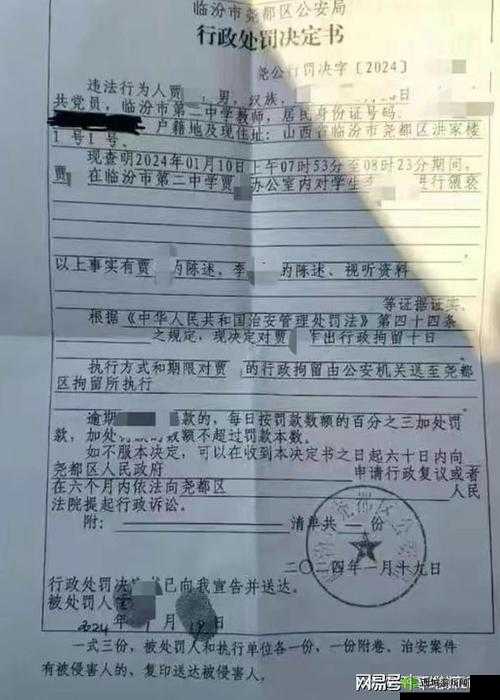 临汾市尧都区公安局
行政处罚决定书
尧公行罚决字〔2024〕
违法行为人贾 ，男，汉族， 日
共党员，临汾市第二中学教师，居民身份证号码：
户籍地及现住址：山西省临汾市尧都区洪家楼
1号1号。
现查明2024年01月10日上午07时53分至08时23分期间，
贾 在临汾市第二中学贾 办公室内对学生李 进行猥亵
以上事实有贾 的陈述、李 的陈述、视听资料
等证据证实。
根据《中华人民共和国治安管理处罚法》第四十四条
之规定，现决定对贾 作出行政拘留十日
执行方式和期限对贾 的行政拘留由公安机关送至尧都
区拘留所执行
逾期 款的，每日按罚款数额的百分之三加处罚
款，加处罚款的数额不超过罚款本数。
如不服本决定，可以在收到本决定书之日起六十日内向
尧都区人民政府 申请行政复议或者
在六个月内依法向尧都区 人民
法院提起行政诉讼。
附： 清单共 份
二〇二四年一月十九日
行政处罚决 书已向我宣告并送达。
被处罚人
2024年 1月19日
一式三份，被处罚人和执行单位各一份，一份附卷。治安案件
有被侵害人的，复印送达被侵害人。
网易号